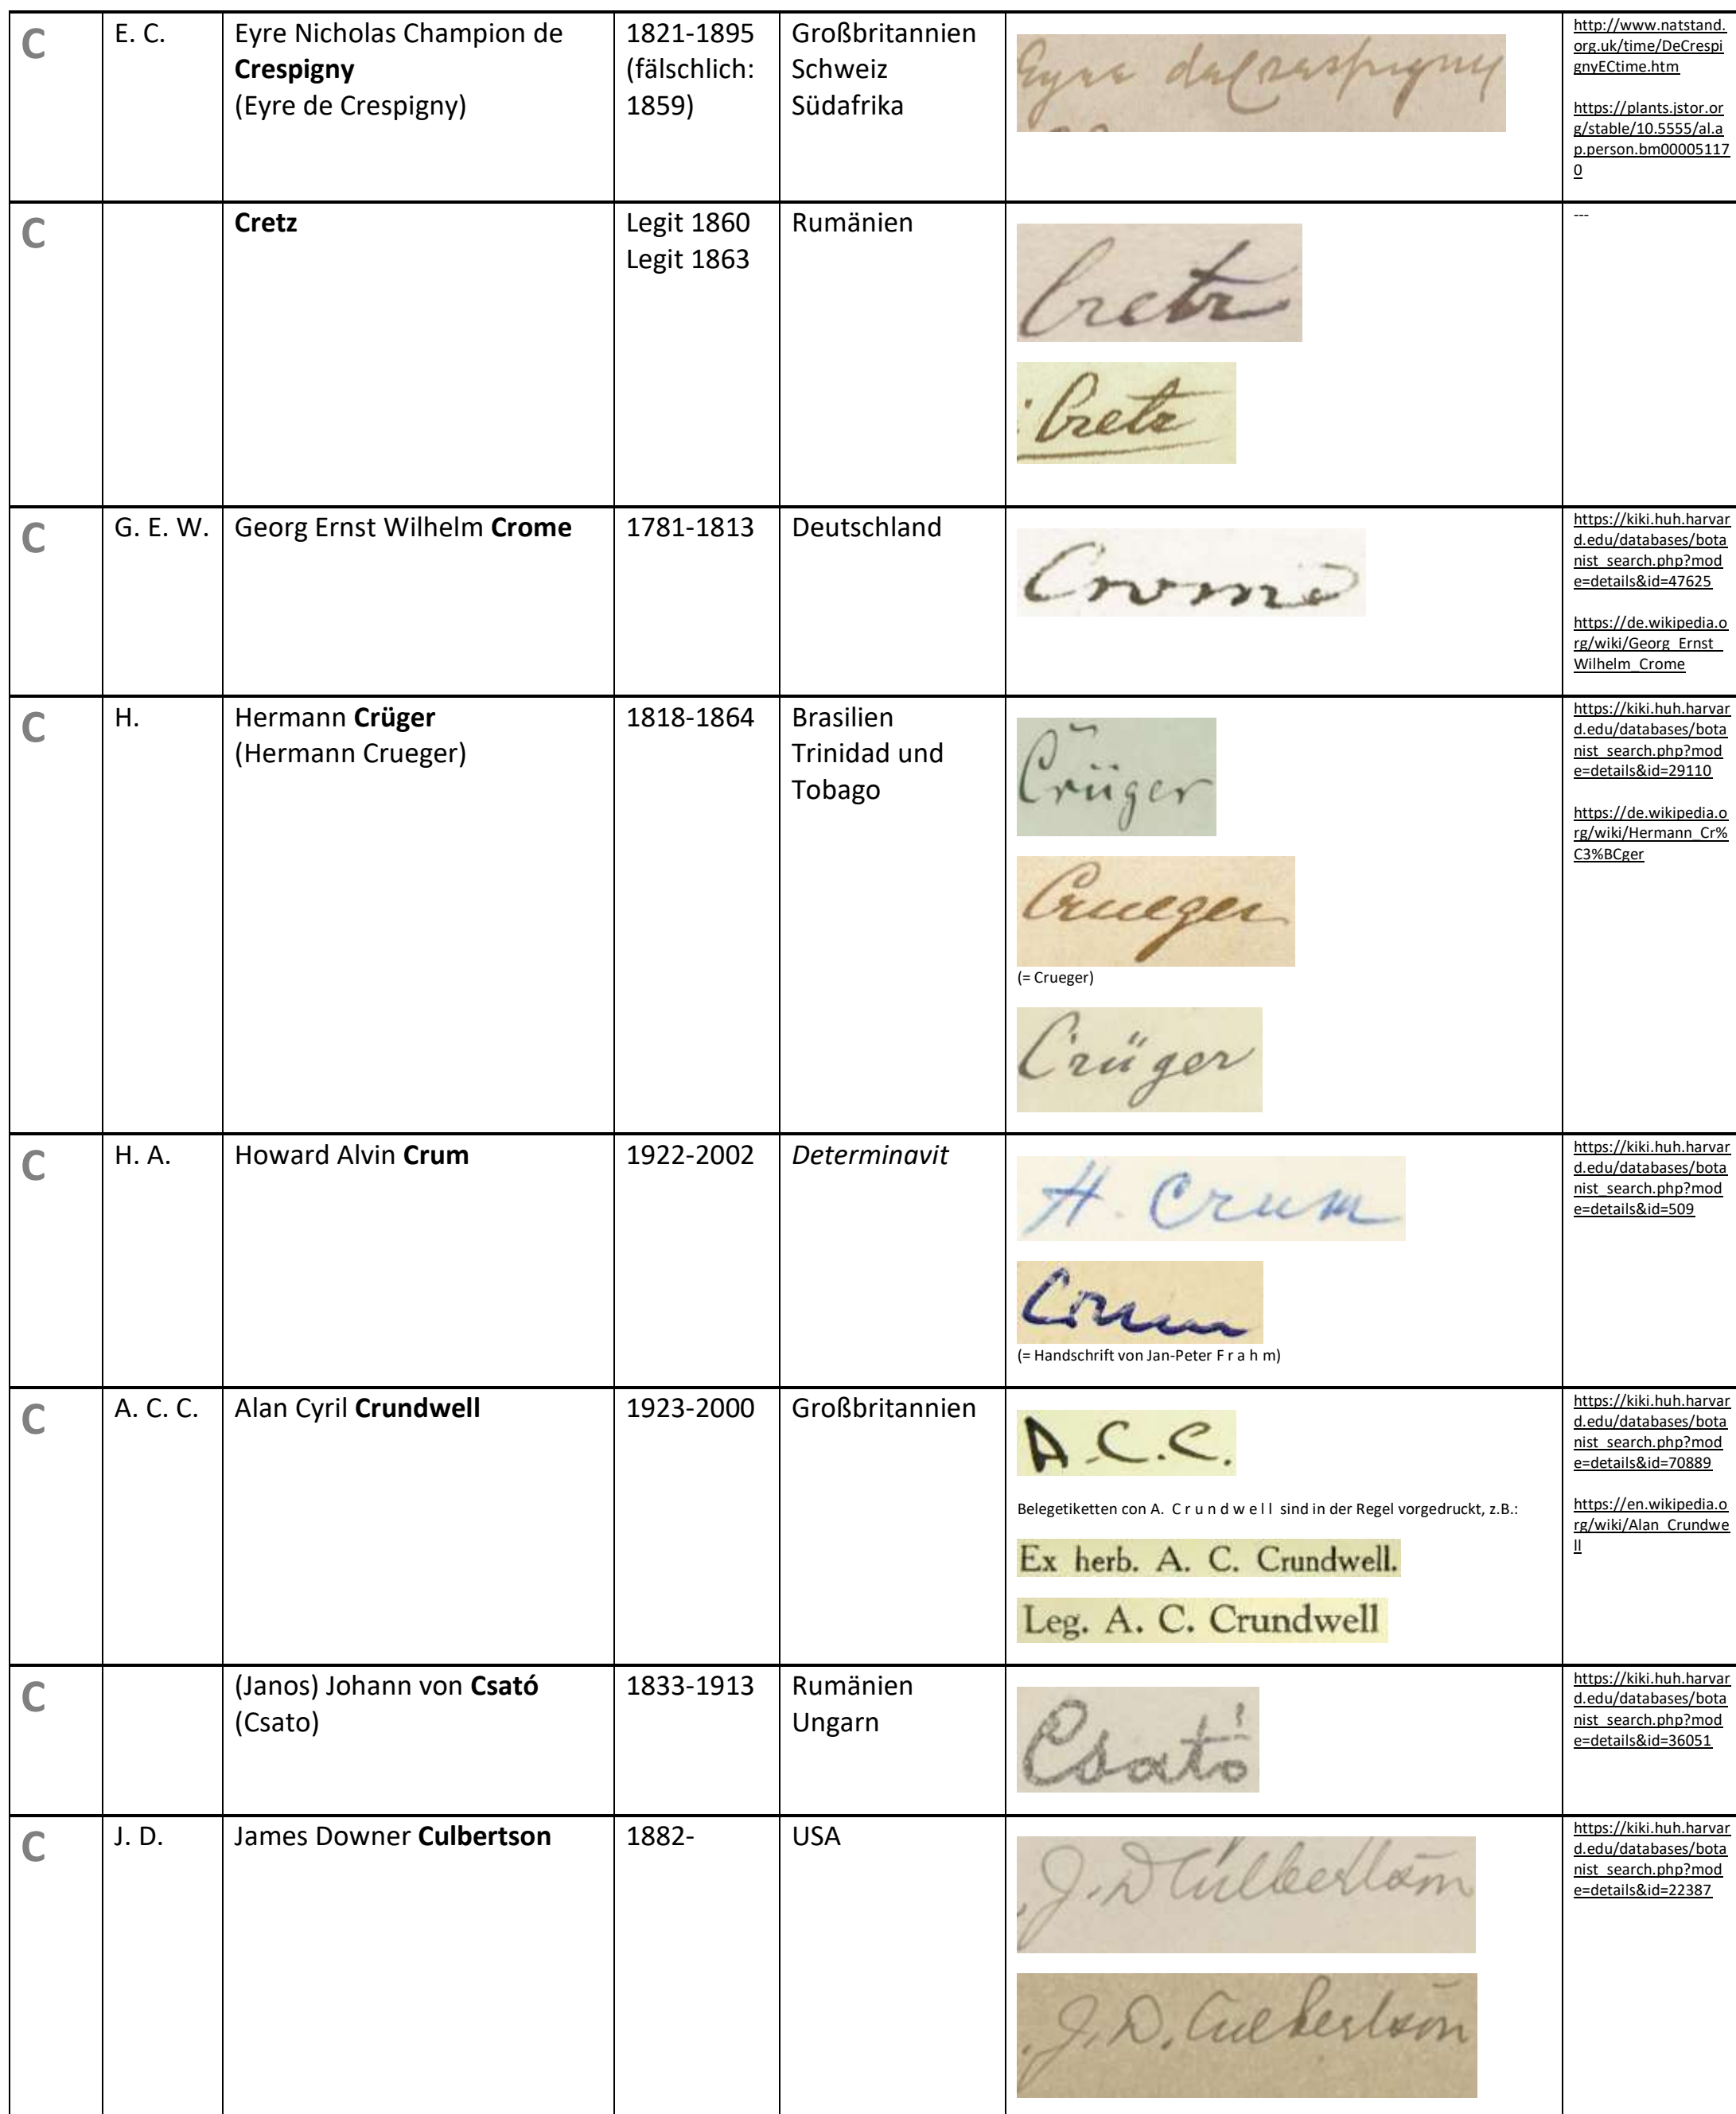 C
E. C.
Eyre Nicholas Champion de
Crespigny
(Eyre de Crespigny)
1821-1895
(fälschlich:
1859)
Großbritannien
Schweiz
Südafrika
Eyre deCrespigny
http://www.natstand.
org.uk/time/DeCrespi
gnyECtime.htm
https://plants.jstor.or
g/stable/10.5555/al.a
p.person.bm00005117
0
C
Cretz
Legit 1860
Legit 1863
Rumänien
Cretz
Cretz
---
C
G. E. W.
Georg Ernst Wilhelm Crome
1781-1813
Deutschland
Crome
https://kiki.huh.harvar
d.edu/databases/bota
nist_search.php?mod
e=details&id=47625
https://de.wikipedia.o
rg/wiki/Georg_Ernst_
Wilhelm_Crome
C
H.
Hermann Crüger
(Hermann Crueger)
1818-1864
Brasilien
Trinidad und
Tobago
Crüger
Crueger
(= Crueger)
Crüger
https://kiki.huh.harvar
d.edu/databases/bota
nist_search.php?mod
e=details&id=29110
https://de.wikipedia.o
rg/wiki/Hermann_Cr%
C3%BCger
C
H. A.
Howard Alvin Crum
1922-2002
Determinavit
H. Crum
Crum
(= Handschrift von Jan-Peter F r a h m)
https://kiki.huh.harvar
d.edu/databases/bota
nist_search.php?mod
e=details&id=509
C
A. C. C.
Alan Cyril Crundwell
1923-2000
Großbritannien
A.C.C.
Belegetiketten con A. C r u n d w e l l sind in der Regel vorgedruckt, z.B.:
Ex herb. A. C. Crundwell.
Leg. A. C. Crundwell
https://kiki.huh.harvar
d.edu/databases/bota
nist_search.php?mod
e=details&id=70889
https://en.wikipedia.o
rg/wiki/Alan_Crundwe
ll
C
(Janos) Johann von Csató
(Csato)
1833-1913
Rumänien
Ungarn
Csató
https://kiki.huh.harvar
d.edu/databases/bota
nist_search.php?mod
e=details&id=36051
C
J. D.
James Downer Culbertson
1882-
USA
J. D Culbertson
J. D. Culbertson
https://kiki.huh.harvar
d.edu/databases/bota
nist_search.php?mod
e=details&id=22387